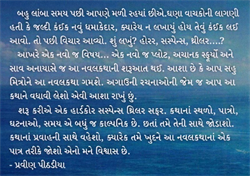 બહુ લાંબા સમય પછી આપણે મળી રહયાં છીએ.ઘણા વાચકોની લાગણી
હતી કે જલ્દી કંઇક નવું ધમાકેદાર, ક્યારેય ન લખાયું હોય તેવું કંઇક લઇ
આવો. તો પછી વિચાર આવ્યો. શું લખું? હોરર, સસ્પેન્સ, થ્રીલર....?
આખરે એક નવો જ વિષય... એક નવો જ પ્લોટ, અચાનક સ્ફુર્યો અને
સાવ અનાયાસે જ આ નવલકથાની શરૂઆત થઇ. આશા છે કે આપ સહુ
મિત્રોને આ નવલકથા ગમશે. અગાઉની રચનાઓની જેમ જ આપ આ
કથાને વધાવી લેશો એવી આશા રાખું છું.
શરૂ કરીએ એક હાર્ડકોર સસ્પેન્સ થ્રિલર સફર. કથાનાં સ્થળો, પાત્રો,
ઘટનાઓ, સમય એ બધું જ કાલ્પનિક છે. છતાં તમે તેની સાથે જોડાશો.
કથાનાં પ્રવાહની સાથે વહેશો. ક્યારેક તમે ખુદને આ નવલકથાનાં એક
પાત્ર તરીકે જોશો એનો મને વિશ્વાસ છે.
- પ્રવીણ પીઠડીયા